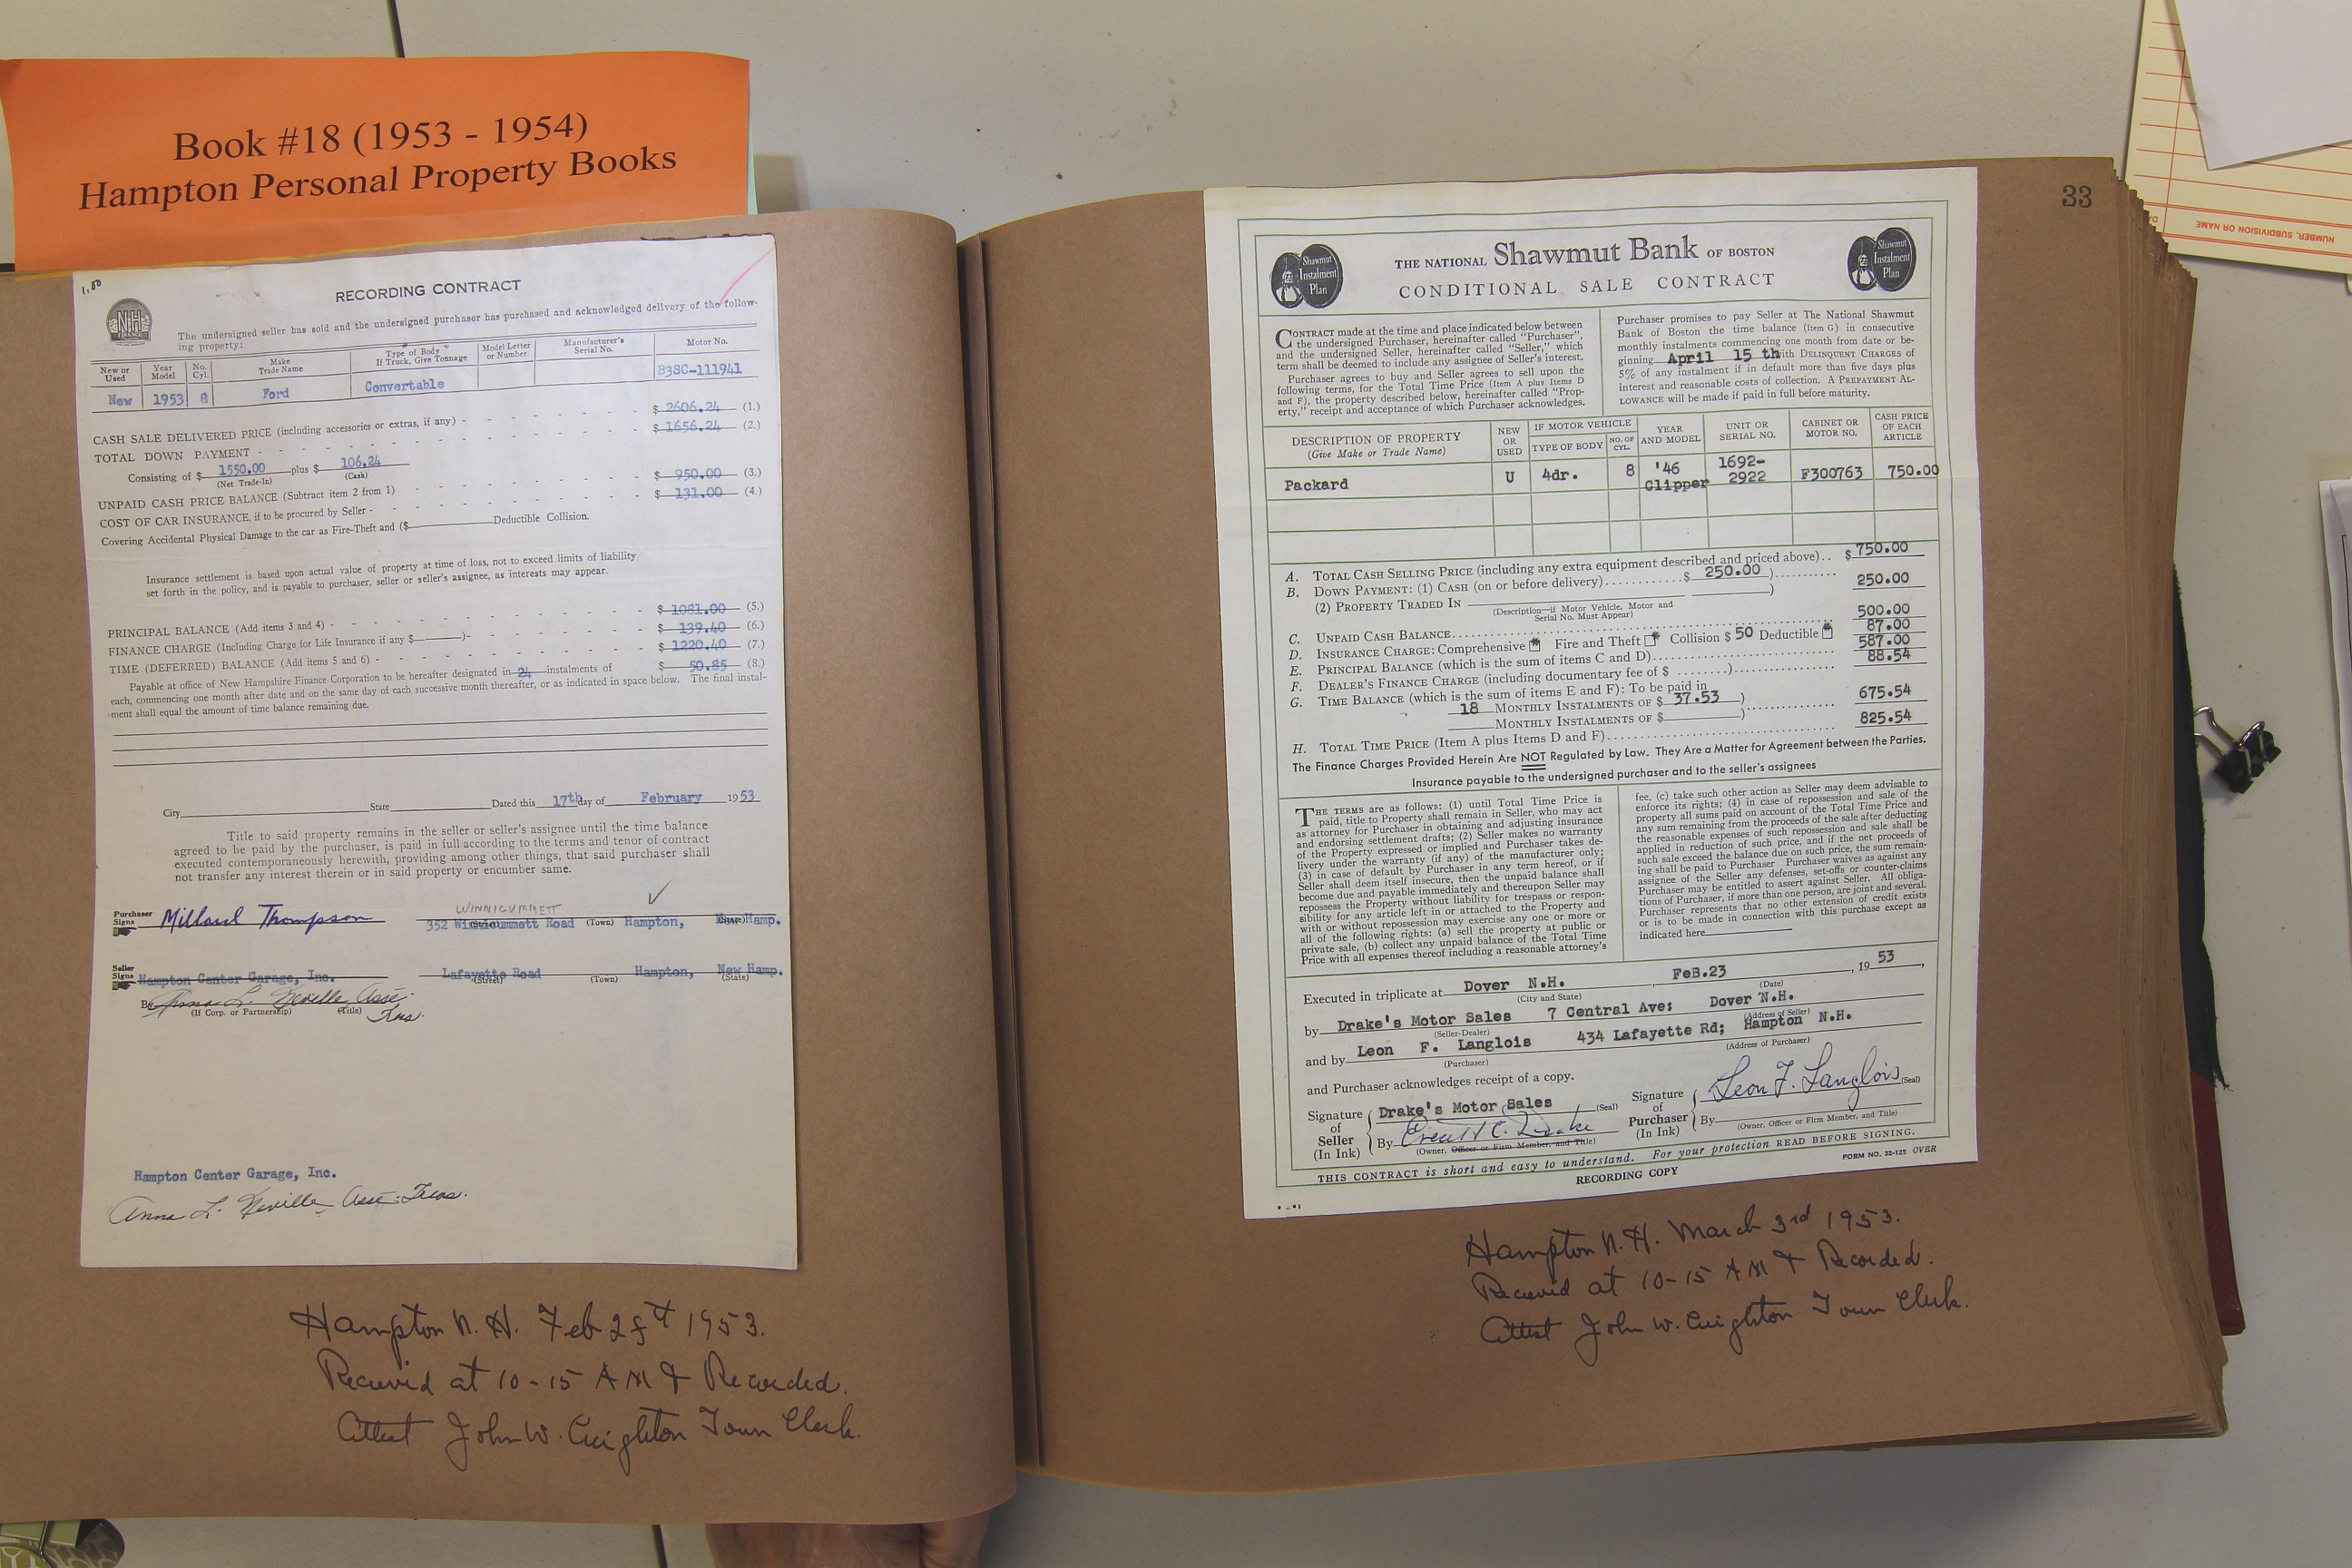 Book #18 (1953 - 1954)
Hampton Personal Property Books
1.00
RECORDING CONTRACT
NH
The undersigned seller has sold and the undersigned purchaser has purchased and acknowledged delivery of the follow-
ing property:
New or Used | Year Model | No. Cyl. | Make Trade Name | Type of Body If Truck, Give Tonnage | Model Letter or Number | Manufacturer's Serial No. | Motor No.
New | 1953 | 8 | Ford | Convertable | B3SC-111941
CASH SALE DELIVERED PRICE (including accessories or extras, if any) - $ 2606.24 (1.)
TOTAL DOWN PAYMENT - $ 1656.24 (2.)
Consisting of $ 1550.00 plus $ 106.24
(Net Trade-In) (Cash)
UNPAID CASH PRICE BALANCE (Subtract item 2 from 1) $ 950.00 (3.)
COST OF CAR INSURANCE, if to be procured by Seller - $ 131.00 (4.)
Covering Accidental Physical Damage to the car as Fire-Theft and ($ Deductible Collision.
Insurance settlement is based upon actual value of property at time of loss, not to exceed limits of liability
set forth in the policy, and is payable to purchaser, seller or seller's assignee, as interests may appear.
PRINCIPAL BALANCE (Add items 3 and 4) - $ 1081.00 (5.)
FINANCE CHARGE (Including Charge for Life Insurance if any $ )- $ 139.40 (6.)
TIME (DEFERRED) BALANCE (Add items 5 and 6) - $ 1220.40 (7.)
Payable at office of New Hampshire Finance Corporation to be hereafter designated in 24 instalments of $ 50.85 (8.)
each, commencing one month after date and on the same day of each successive month thereafter, or as indicated in space below. The final instal-
ment shall equal the amount of time balance remaining due.
City State Dated this 17th day of February 1953
Title to said property remains in the seller or seller's assignee until the time balance
agreed to be paid by the purchaser, is paid in full according to the terms and tenor of contract
executed contemporaneously herewith, providing among other things, that said purchaser shall
not transfer any interest therein or in said property or encumber same.
WINNICUMMETT
Purchaser Signs Millard Thompson 352 Winnicummett Road (Street) (Town) Hampton, New Hamp. (State)
Seller Signs Hampton Center Garage, Inc. Lafayette Road (Street) (Town) Hampton, New Hamp. (State)
By Anna L. Neville, Asse. Treas.
(If Corp. or Partnership) (Title)
Hampton Center Garage, Inc.
Anna L. Neville, Asse. Treas.
Hampton N.H. Feb 1953.
Recievid at 10-15 AM & Recorded.
Attest John W. Creighton Town Clerk.
33
Shawmut Instalment Plan
THE NATIONAL Shawmut Bank OF BOSTON
CONDITIONAL SALE CONTRACT
Shawmut Instalment Plan
CONTRACT made at the time and place indicated below between
the undersigned Purchaser, hereinafter called "Purchaser",
and the undersigned Seller, hereinafter called "Seller," which
term shall be deemed to include any assignee of Seller's interest.
Purchaser agrees to buy and Seller agrees to sell upon the
following terms, for the Total Time Price (Item A plus Items D
and F), the property described below, hereinafter called "Prop-
erty," receipt and acceptance of which Purchaser acknowledges.
Purchaser promises to pay Seller at The National Shawmut
Bank of Boston the time balance (Item G) in consecutive
monthly instalments commencing one month from date or be-
ginning April 15 th with DELINQUENT CHARGES of
5% of any instalment if in default more than five days plus
interest and reasonable costs of collection. A PREPAYMENT AL-
LOWANCE will be made if paid in full before maturity.
DESCRIPTION OF PROPERTY (Give Make or Trade Name) | NEW OR USED | IF MOTOR VEHICLE TYPE OF BODY | NO. OF CYL. | YEAR AND MODEL | UNIT OR SERIAL NO. | CABINET OR MOTOR NO. | CASH PRICE OF EACH ARTICLE
Packard | U | 4dr. | 8 | '46 Clipper | 1692-2922 | F300763 | 750.00
A. TOTAL CASH SELLING PRICE (including any extra equipment described and priced above).. $ 750.00
B. DOWN PAYMENT: (1) CASH (on or before delivery)..........$ 250.00 )..........
(2) PROPERTY TRADED IN ) 250.00
(Description—if Motor Vehicle, Motor and
Serial No. Must Appear)
C. UNPAID CASH BALANCE.......... 500.00
D. INSURANCE CHARGE: Comprehensive Fire and Theft Collision $ 50 Deductible 87.00
E. PRINCIPAL BALANCE (which is the sum of items C and D).......... 587.00
F. DEALER'S FINANCE CHARGE (including documentary fee of $ ........).......... 88.54
G. TIME BALANCE (which is the sum of items E and F): To be paid in
18 MONTHLY INSTALMENTS OF $ 37.53 )..........
MONTHLY INSTALMENTS OF $ ).......... 675.54
H. TOTAL TIME PRICE (Item A plus Items D and F).......... 825.54
The Finance Charges Provided Herein Are NOT Regulated by Law. They Are a Matter for Agreement between the Parties.
Insurance payable to the undersigned purchaser and to the seller's assignees
THE TERMS are as follows: (1) until Total Time Price is
paid, title to Property shall remain in Seller, who may act
as attorney for Purchaser in obtaining and adjusting insurance
and endorsing settlement drafts; (2) Seller makes no warranty
of the Property expressed or implied and Purchaser takes de-
livery under the warranty (if any) of the manufacturer only;
(3) in case of default by Purchaser in any term hereof, or if
Seller shall deem itself insecure, then the unpaid balance shall
become due and payable immediately and thereupon Seller may
repossess the Property without liability for trespass or respon-
sibility for any article left in or attached to the Property and
with or without repossession may exercise any one or more or
all of the following rights: (a) sell the property at public or
private sale, (b) collect any unpaid balance of the Total Time
Price with all expenses thereof including a reasonable attorney's
fee, (c) take such other action as Seller may deem advisable to
enforce its rights; (4) in case of repossession and sale of the
property all sums paid on account of the Total Time Price and
any sum remaining from the proceeds of the sale after deducting
the reasonable expenses of such repossession and sale shall be
applied in reduction of such price, and if the net proceeds of
such sale exceed the balance due on such price, the sum remain-
ing shall be paid to Purchaser Purchaser waives as against any
assignee of the Seller any defenses, set-offs or counter-claims
Purchaser may be entitled to assert against Seller. All obliga-
tions of Purchaser, if more than one person, are joint and several.
Purchaser represents that no other extension of credit exists
or is to be made in connection with this purchase except as
indicated here
Executed in triplicate at Dover N.H. FeB.23, 1953,
(City and State) (Date)
by Drake's Motor Sales 7 Central Ave; Dover N.H.
(Seller-Dealer) (Address of Seller)
and by Leon F. Langlois 434 Lafayette Rd; Hampton N.H.
(Purchaser) (Address of Purchaser)
and Purchaser acknowledges receipt of a copy.
Signature of Seller (In Ink) Drake's Motor Sales (Seal)
By Everett C. Drake
(Owner, Officer or Firm Member, and Title)
Signature of Purchaser (In Ink) Leon F. Langlois (Seal)
By
(Owner, Officer or Firm Member, and Title)
THIS CONTRACT is short and easy to understand. For your protection READ BEFORE SIGNING.
RECORDING COPY
FORM NO. 32-125 OVER
Hampton N.H. March 3rd 1953.
Recievid at 10-15 AM & Recorded.
Attest John W. Creighton Town Clerk.
NUMBER, SUBDIVISION OR NAME